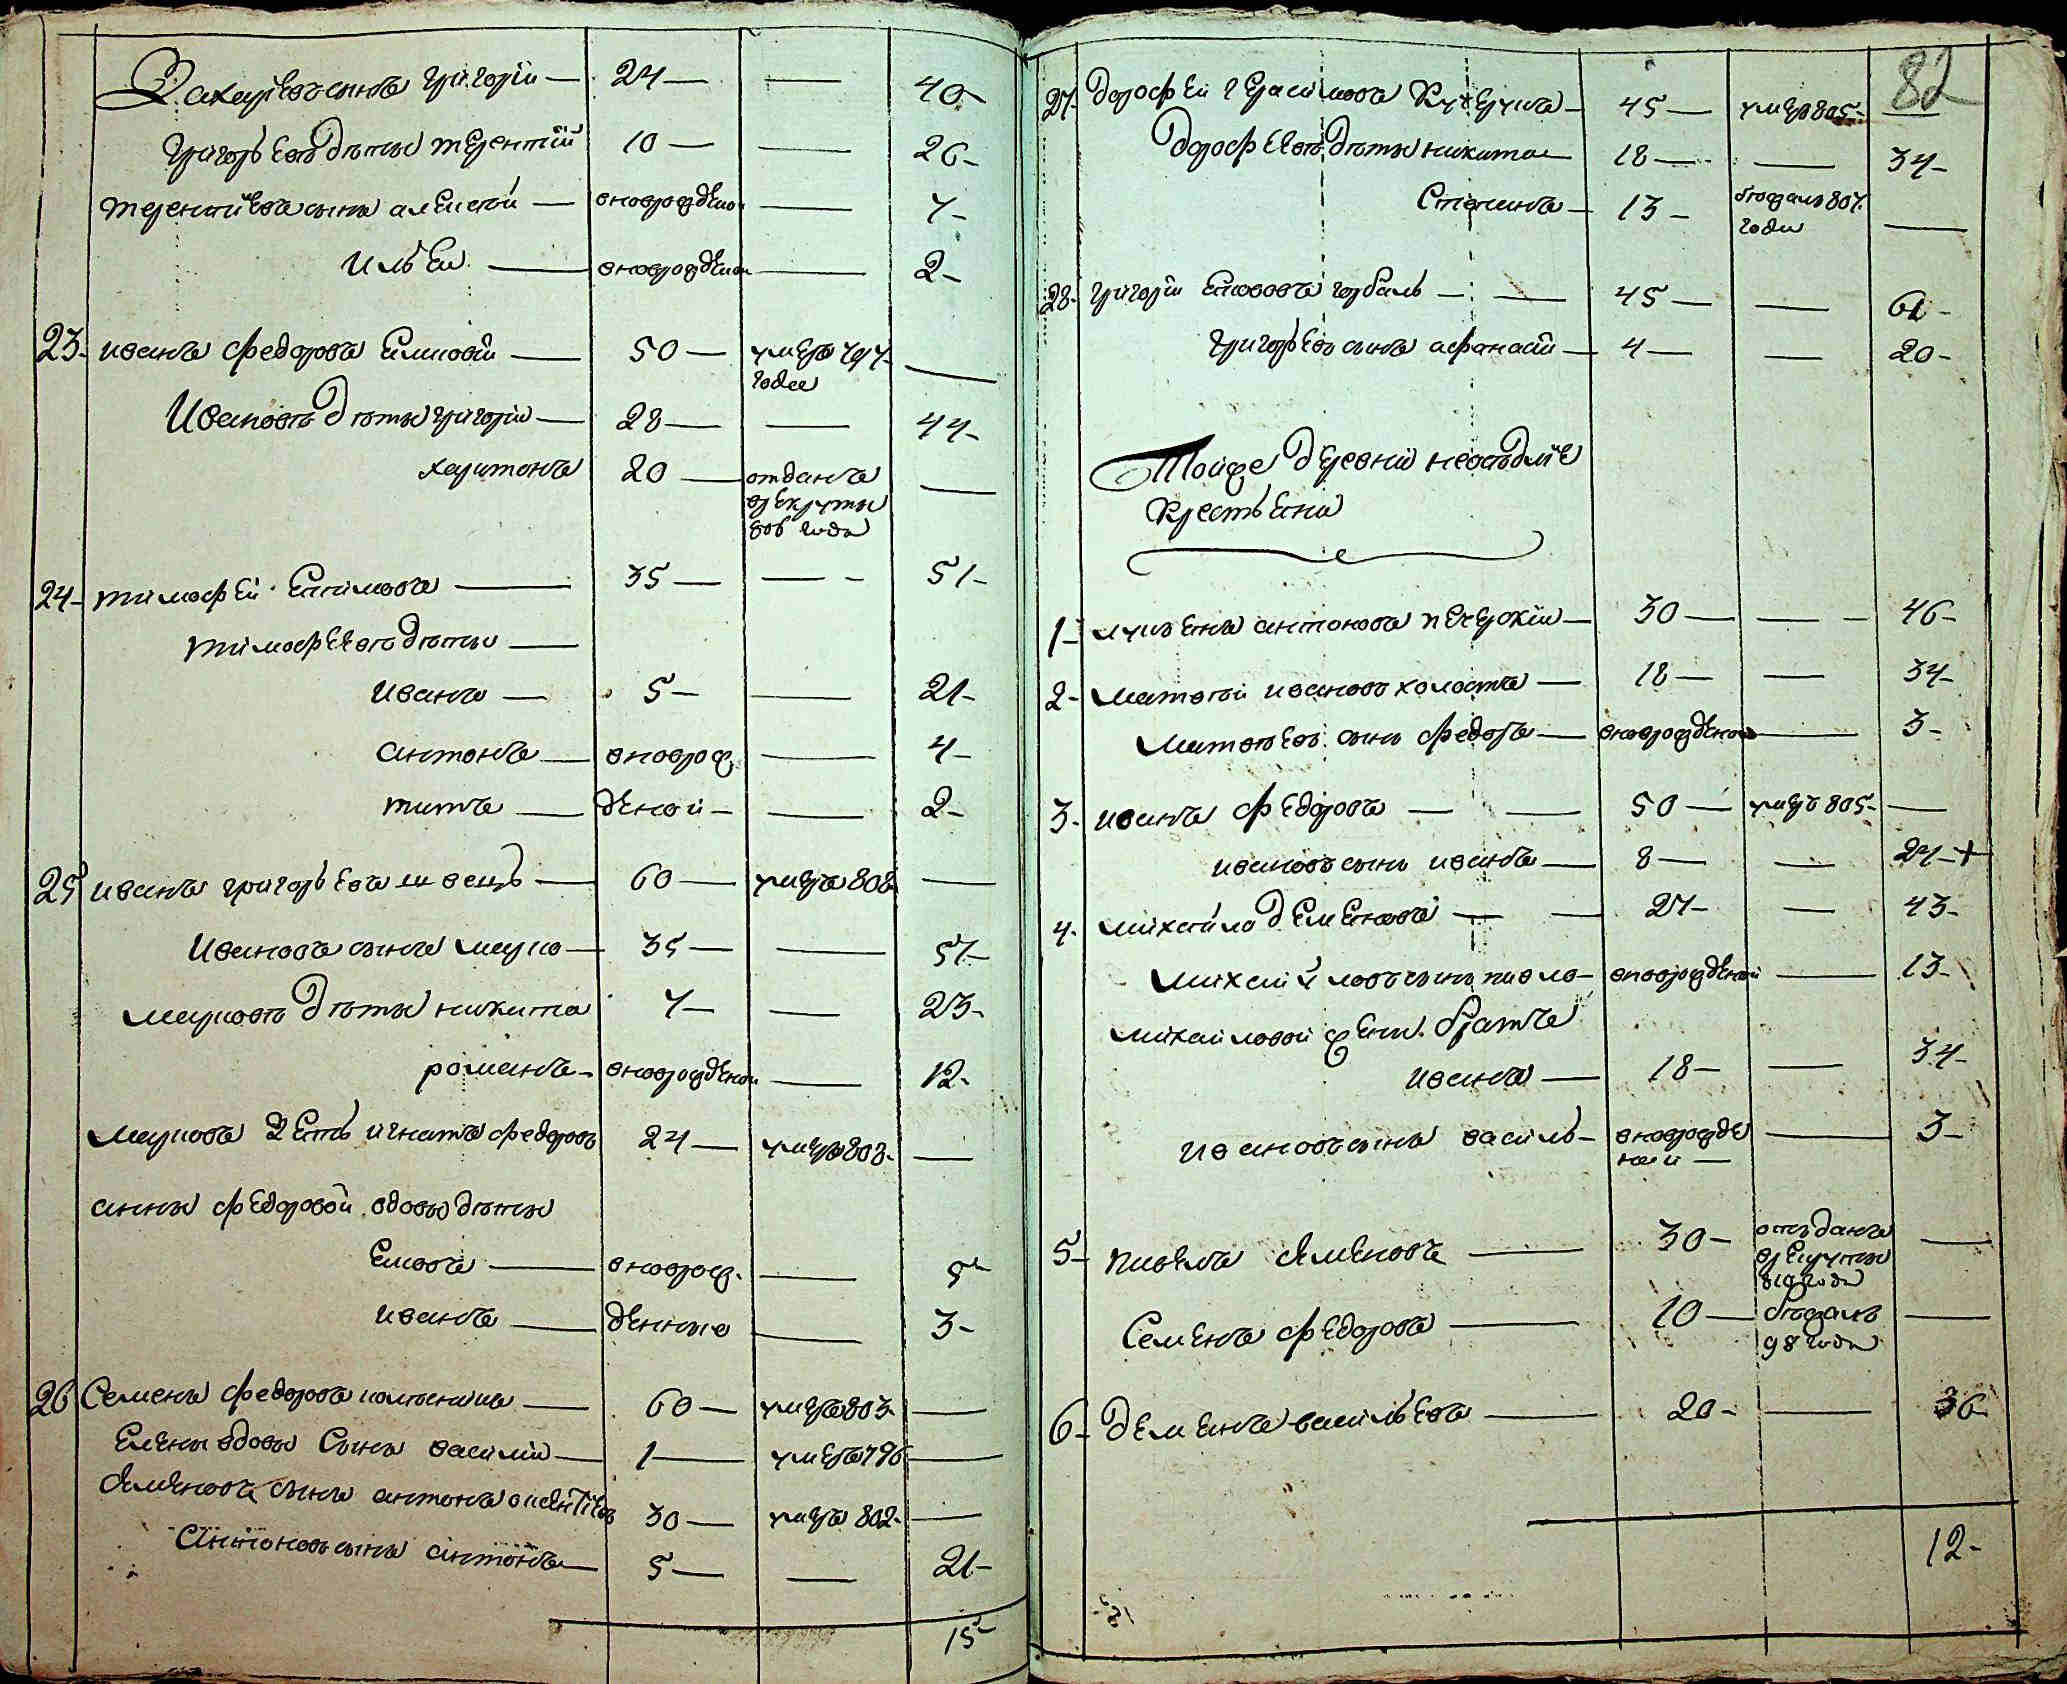 Захарьевъ сынъ григорiй — 24 — — 40 —
григорьевы дѣти терентiй 10 — — 26 —
терентiевъ сынъ алексѣй — вноврожденой — 7 —
илья — вноврожденой — 2 —
23. иванъ федоровъ — 50 — умеръ 797 — —
года
Ивановы дѣти григорiй — 28 — — 44 —
харитонъ 20 — отданъ —
врекруты
806 года
24 — тимофей — 35 — — 51 —
тимофеевы дѣти —
иванъ — 5 — — 21 —
антонъ — вноврож — 4 —
титъ — деной — — 2 —
25 иванъ григорьевъ швецъ — 60 — умеръ 808 —
Ивановъ сынъ марко — 35 — — 51 —
марковы дѣти никита 7 — — 23 —
романъ — вноврожденой — 12 —
марковъ зять игнатъ федоровъ 24 — умеръ 803 — —
анны федоровой вдовы дѣти
вноврож. — 5
иванъ — денные — 3 —
26 Семенъ федоровъ — 60 — умеръ 803 — —
елены вдовы сынъ василiй — 1 — умеръ 796 —
Семеновъ сынъ антонъ 30 — умеръ 802 — —
Антоновъ сынъ антонъ — 5 — — 21 —
15
82
27 дорофей герасимовъ кучерукъ — 45 — умеръ 805 — —
дорофеевы дѣти никита — 18 — — 34 —
Степанъ — 13 — бѣжалъ 807 —
года
28 григорiй горбаль — — 45 — — 61 —
григорьевъ сынъ афанасiй — 4 — — 20 —
Тойже деревни
крестьяне
1 — антоновъ печерскiй — 30 — — 46 —
2 — матвѣй ивановъ — 18 — — 34 —
матвѣевъ сынъ федоръ — вноврожденой — 3 —
3. иванъ федоровъ — — 50 — умеръ 805 — —
ивановъ сынъ иванъ — 8 — — 24 — +
4. михайло деменовъ — — 27 — — 43 —
михайловъ сынъ павло — вноврожденой — 13 —
михайловой жены братъ
иванъ — 18 — — 34 —
ивановъ сынъ василь — вноврожде — 3 —
ной —
5 — павелъ семеновъ — 30 — отъданъ —
врекруты
810 года
Семенъ федоровъ — 10 — бѣжалъ —
98 года
6 — деменъ васильевъ — 20 — — 36
12 —